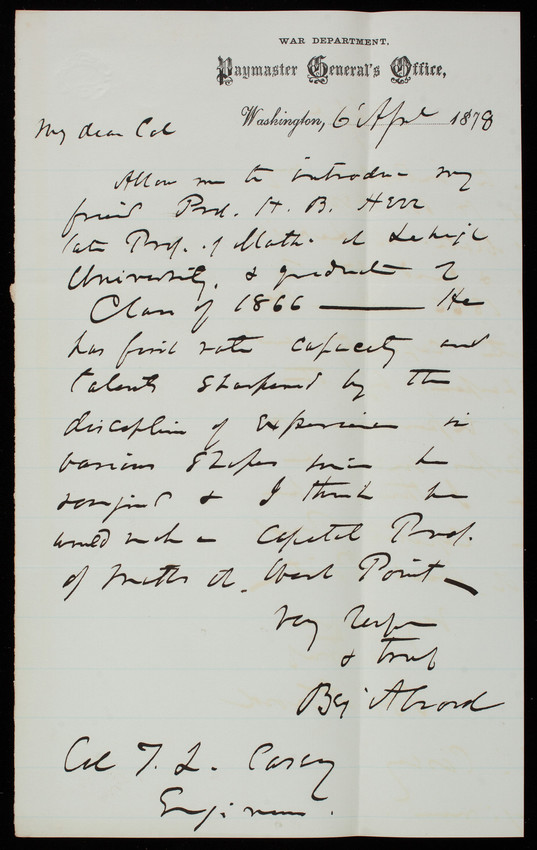 WAR DEPARTMENT.
Paymaster General's Office,
Washington, 6' April 1878
My dear Col
Allow me to introduce my
friend Prof. H. B. Herr
late Prof. of Math. at Lehigh
University, & graduate of
Class of 1866 —— He
has first rate capacity and
talents sharpened by the
discipline of experience in
various shapes since he
resigned & I think he
would make a capital Prof.
of Maths at West Point —
Very Resp
& truly
Benj Alvord
Col T. L. Casey
Engineers.